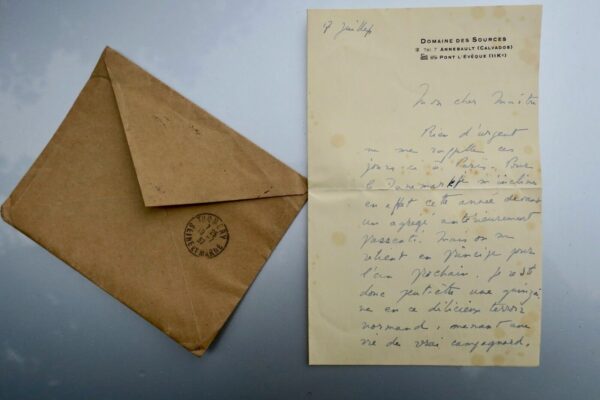 8 Juillet
DOMAINE DES SOURCES
ANNEBAULT (CALVADOS)
PONT L'EVÊQUE (11Kˢ)
Mon cher Maître
Rien d'urgent
ne me rappelle ces
jours ci à Paris. Pour
le Danemark m'incliner
en effet cette année devant
un agrégé antérieurement
pressenti. Mais on me
retient en principe pour
l'an prochain. Je reste
donc peut-être une quinzai
ne en ce délicieux terroir
normand, menant une
vie de vrai campagnard.
THOMERY
SEINE ET MARNE